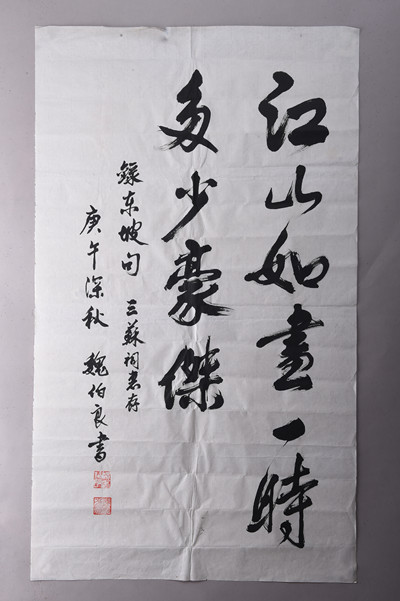 江山如畫一時
多少豪傑
錄东坡句 三蘇祠惠存
庚午深秋 魏伯良書